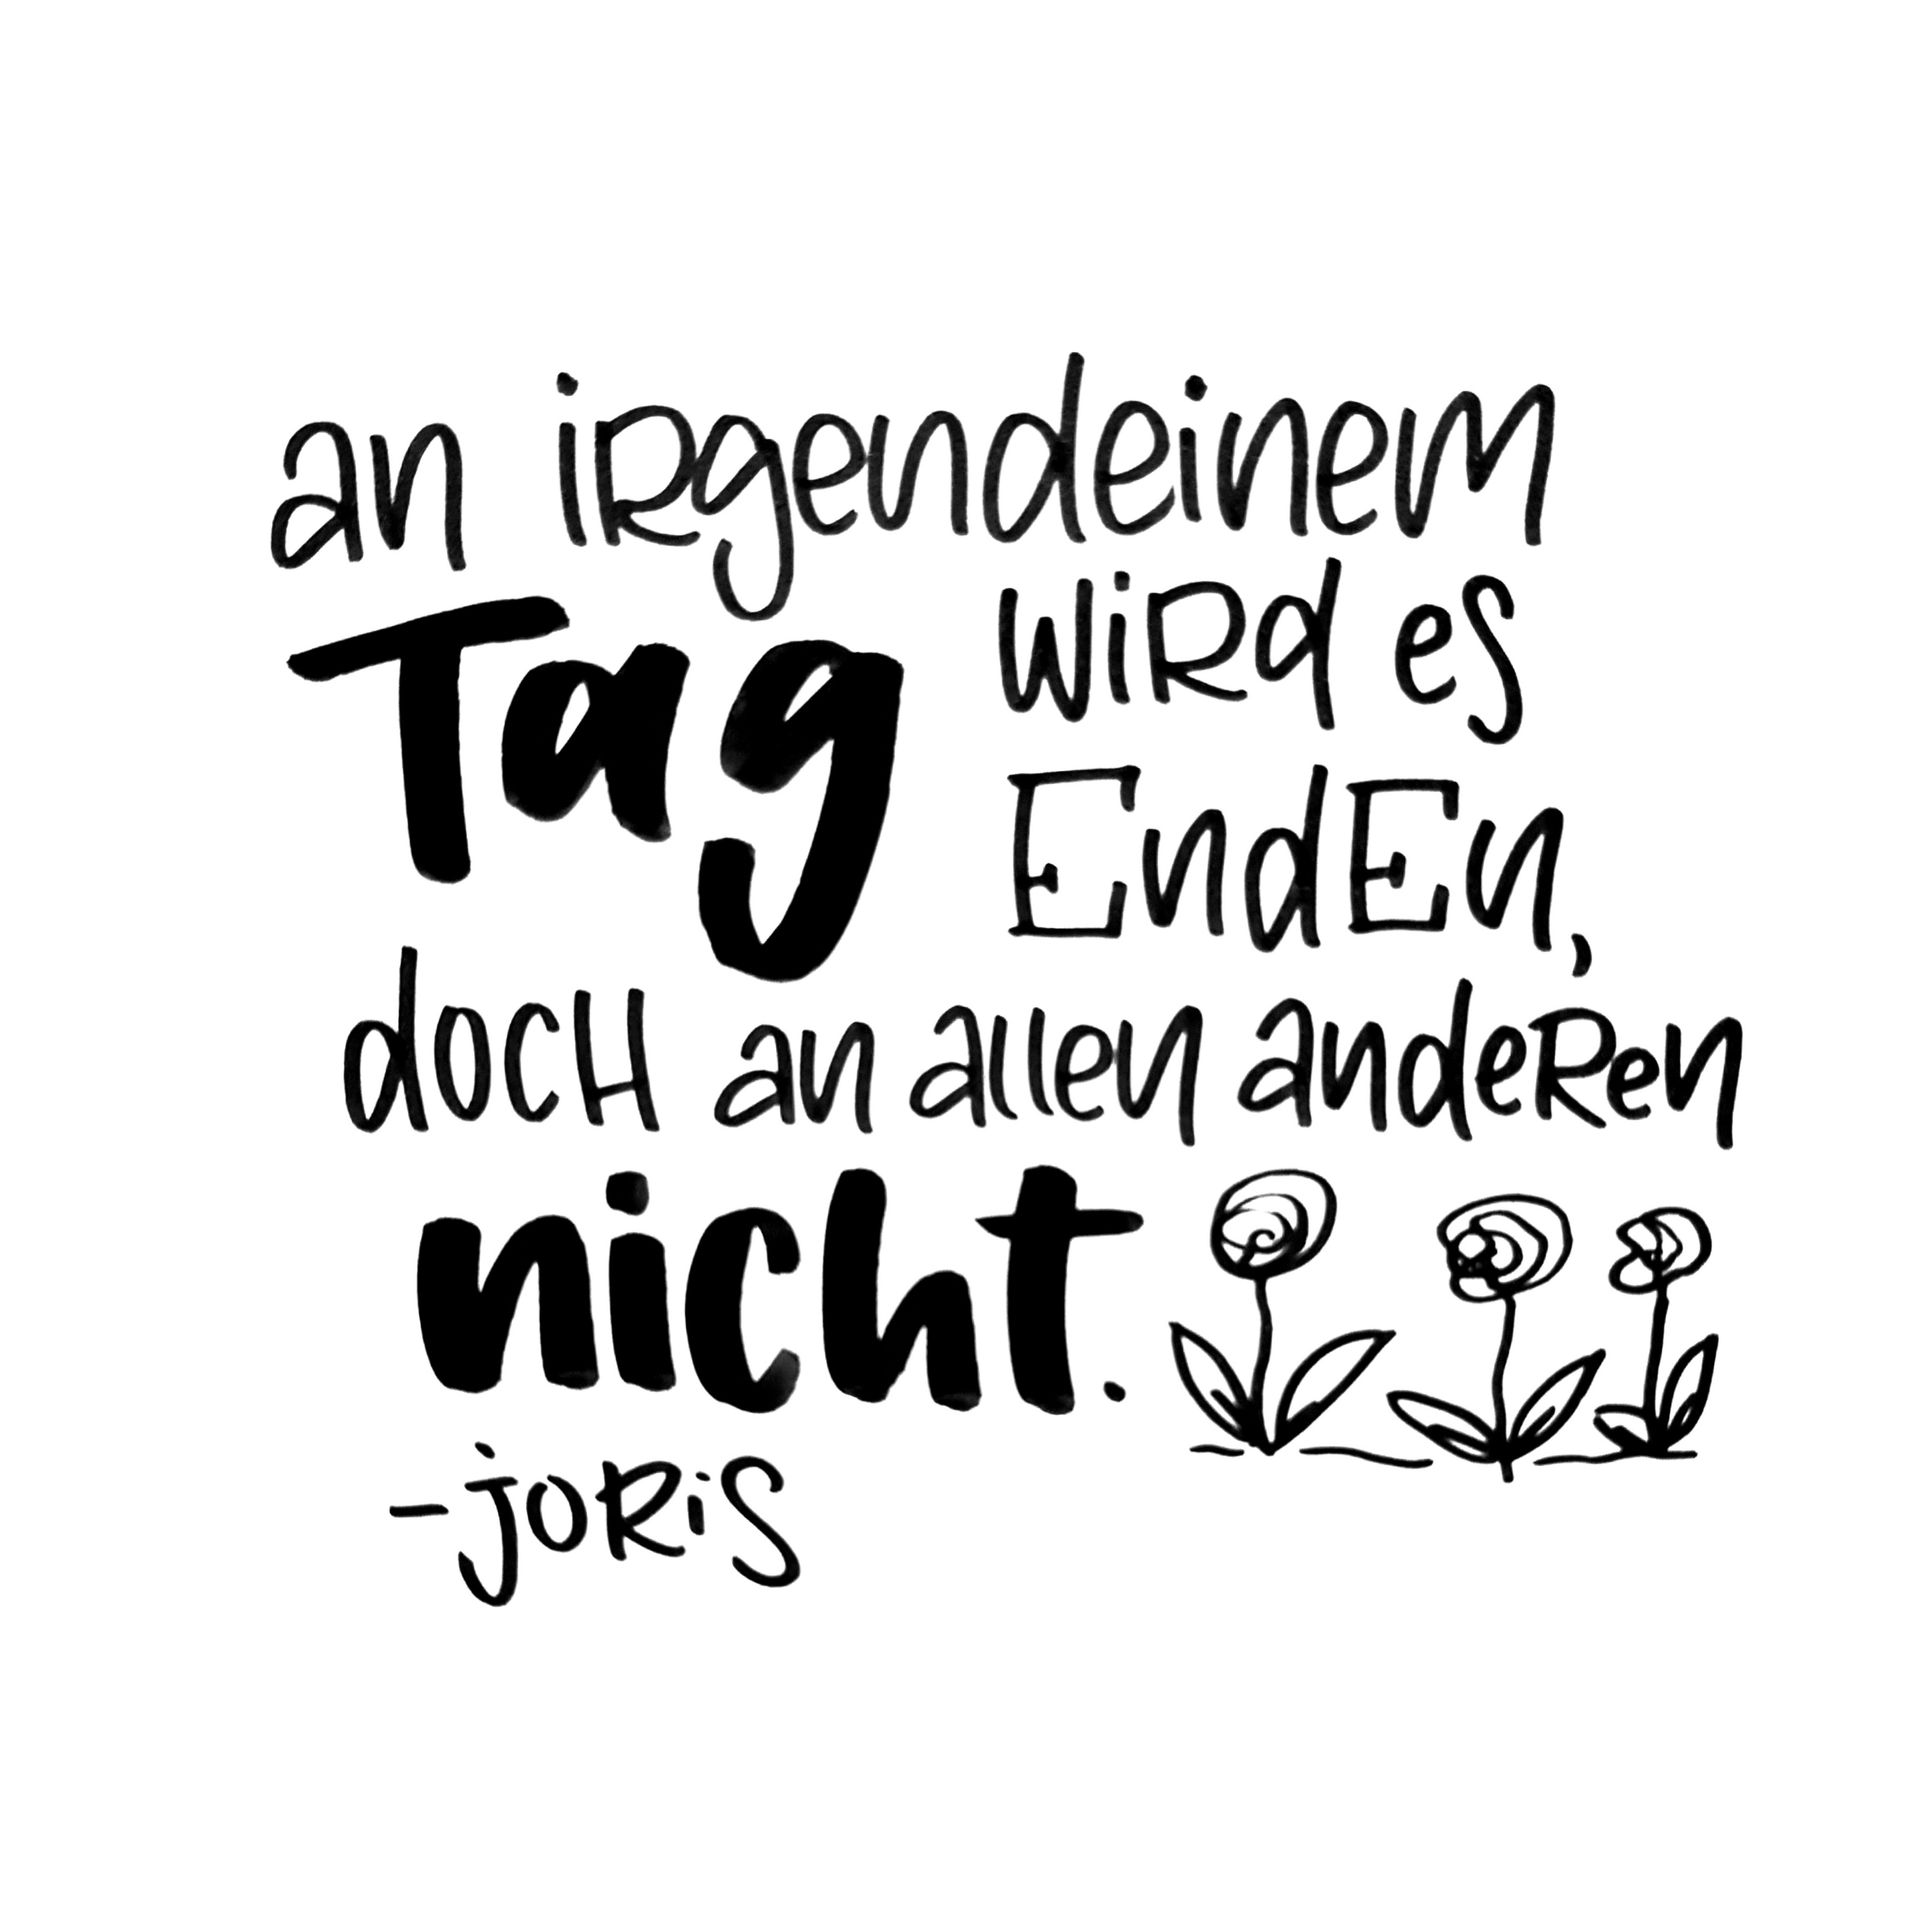 an irgendeinem
Tag wird es
EndEn,
doch an allen anderen
nicht.
-joris